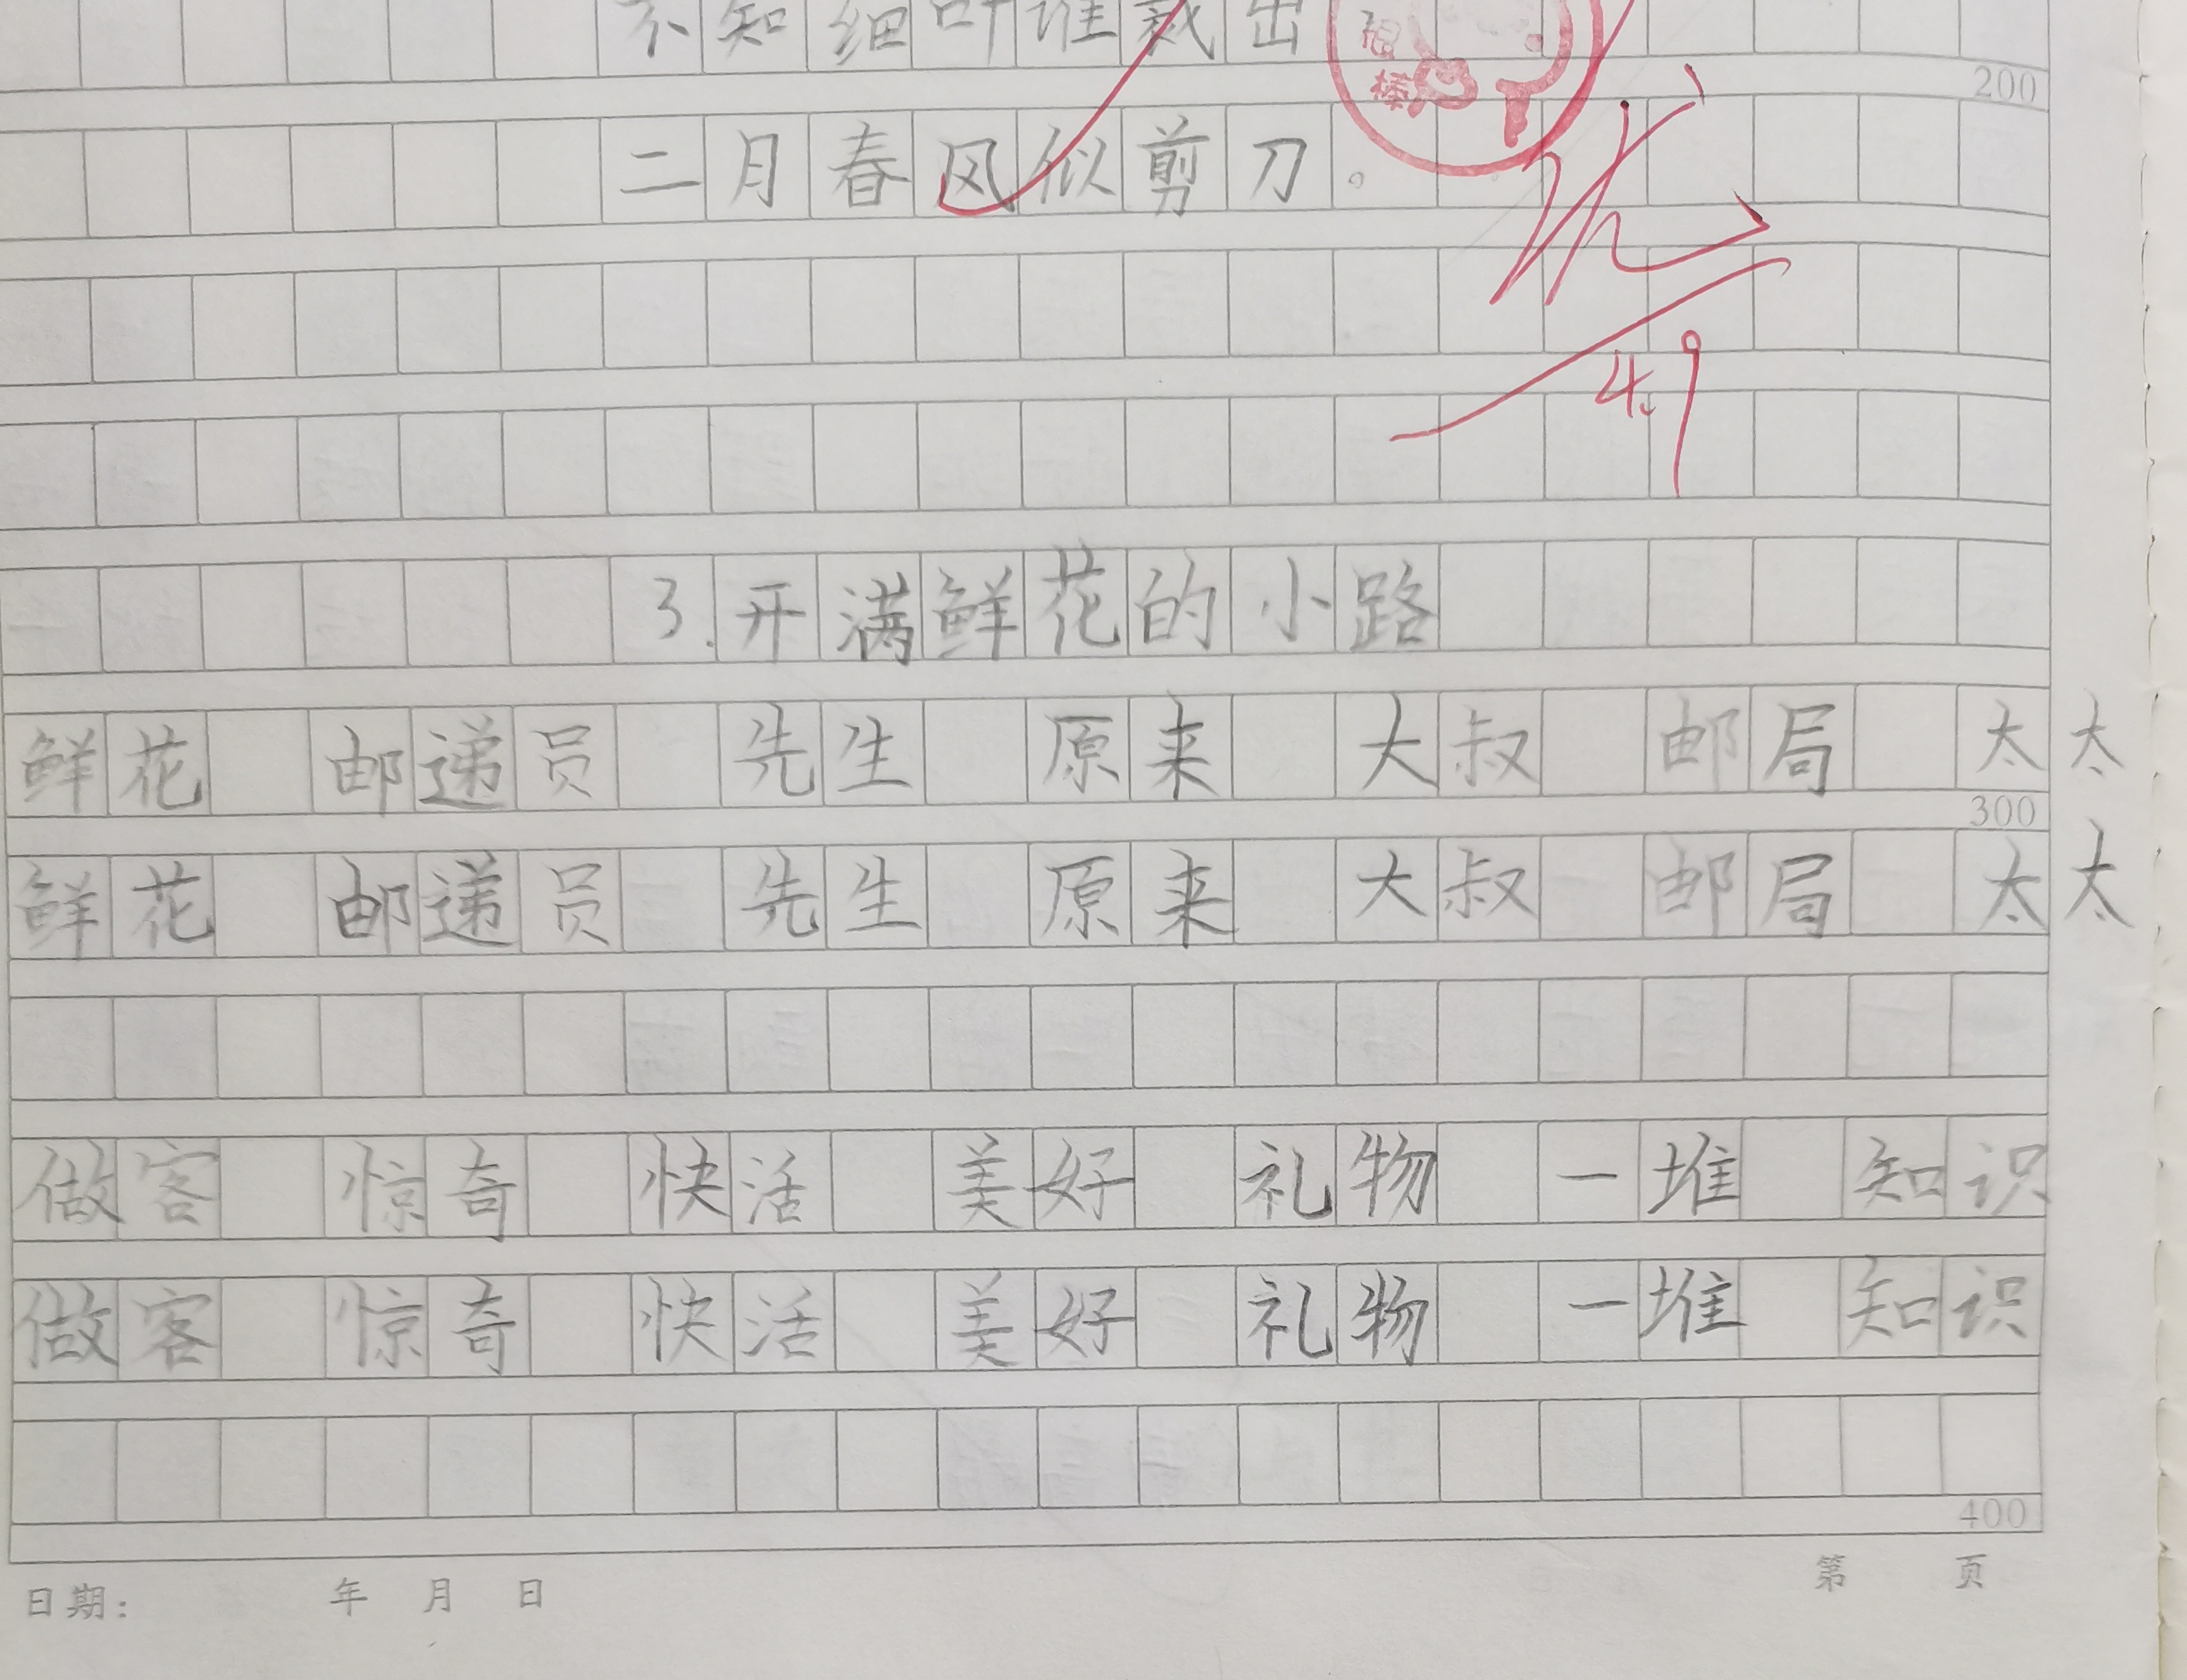 不知细叶谁裁出
200
二月春风似剪刀。
优
4.9
3.开满鲜花的小路
鲜花 邮递员 先生 原来 大叔 邮局 太太
300
鲜花 邮递员 先生 原来 大叔 邮局 太太
做客 惊奇 快活 美好 礼物 一堆 知识
做客 惊奇 快活 美好 礼物 一堆 知识
400
日期: 年 月 日 第 页